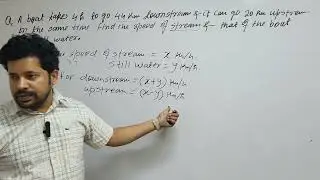 Q. A boat takes 4h to go 44 Km downstream & it can go 20 Km upstream
in the same time. Find the speed of stream & that of the boat
still water.
speed of stream = x Km/h
still water = y Km/h
For downstream = (x+y) Km/h
upstream = (x-y) Km/h